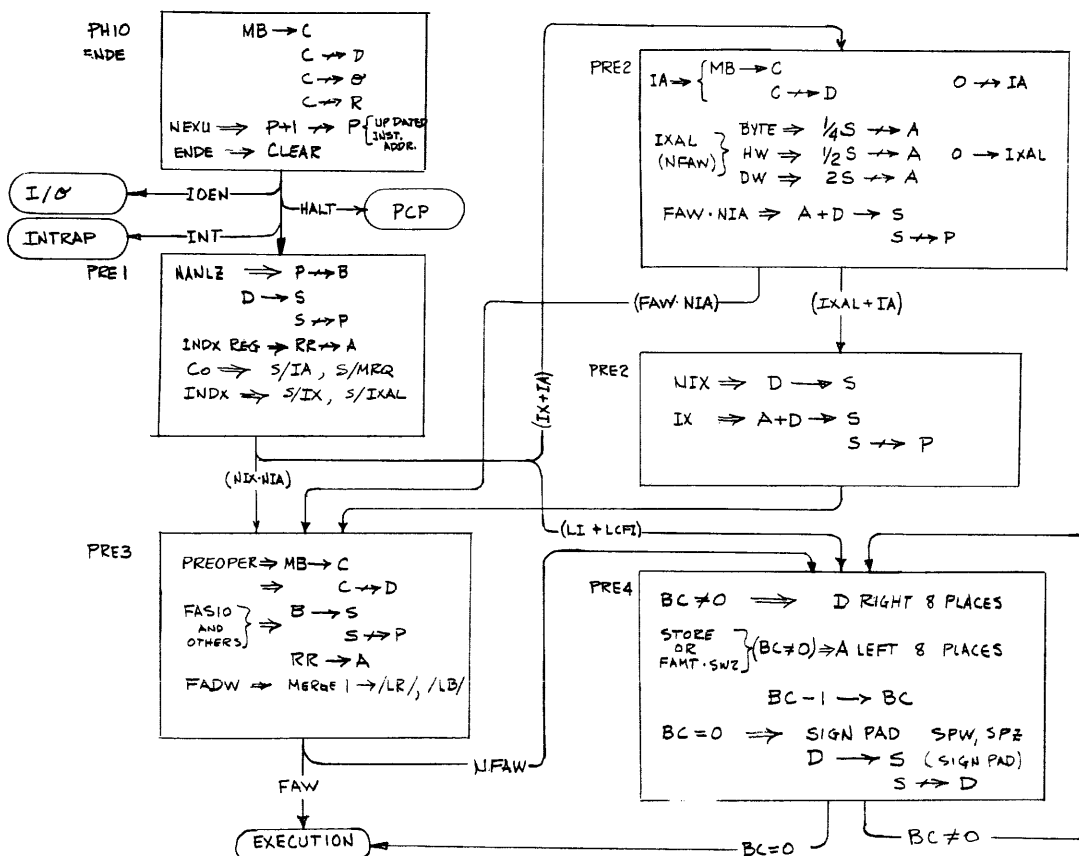 PH10
ENDE
MB → C
C ↛ D
C ↛ O
C ↛ R
NEXU ⇒ P+1 ↛ P { UPDATED INST. ADDR.
ENDE ⇒ CLEAR
I/O
IOEN
HALT
PCP
INTRAP
INT
PRE1
NANLZ ⇒ P ↛ B
D → S
S ↛ P
INDX REG ⇒ RR ↛ A
Co ⇒ S/IA, S/MRQ
INDX ⇒ S/IX, S/IXAL
(NIX·NIA)
(IX+IA)
(LI + LCFI)
PRE2
IA ⇒ { MB → C
C ↛ D
O ↛ IA
IXAL (NFAW) }
BYTE ⇒ 1/4S ↛ A
HW ⇒ 1/2S ↛ A
DW ⇒ 2S ↛ A
O → IXAL
FAW·NIA ⇒ A+D → S
S ↛ P
(FAW·NIA)
(IXAL+IA)
PRE2
NIX ⇒ D → S
IX ⇒ A+D → S
S ↛ P
PRE3
PREOPER ⇒ MB → C
⇒ C ↛ D
FASIO AND OTHERS } ⇒ B → S
S ↛ P
RR → A
FADW ⇒ MERGE 1 → /LR/, /LB/
FAW
NFAW
EXECUTION
PRE4
BC≠0 ⇒ D RIGHT 8 PLACES
STORE OR FAMT·SW2 } (BC≠0) ⇒ A LEFT 8 PLACES
BC-1 → BC
BC=0 ⇒ SIGN PAD SPW, SPZ
D → S (SIGN PAD)
S ↛ D
BC=0
BC≠0